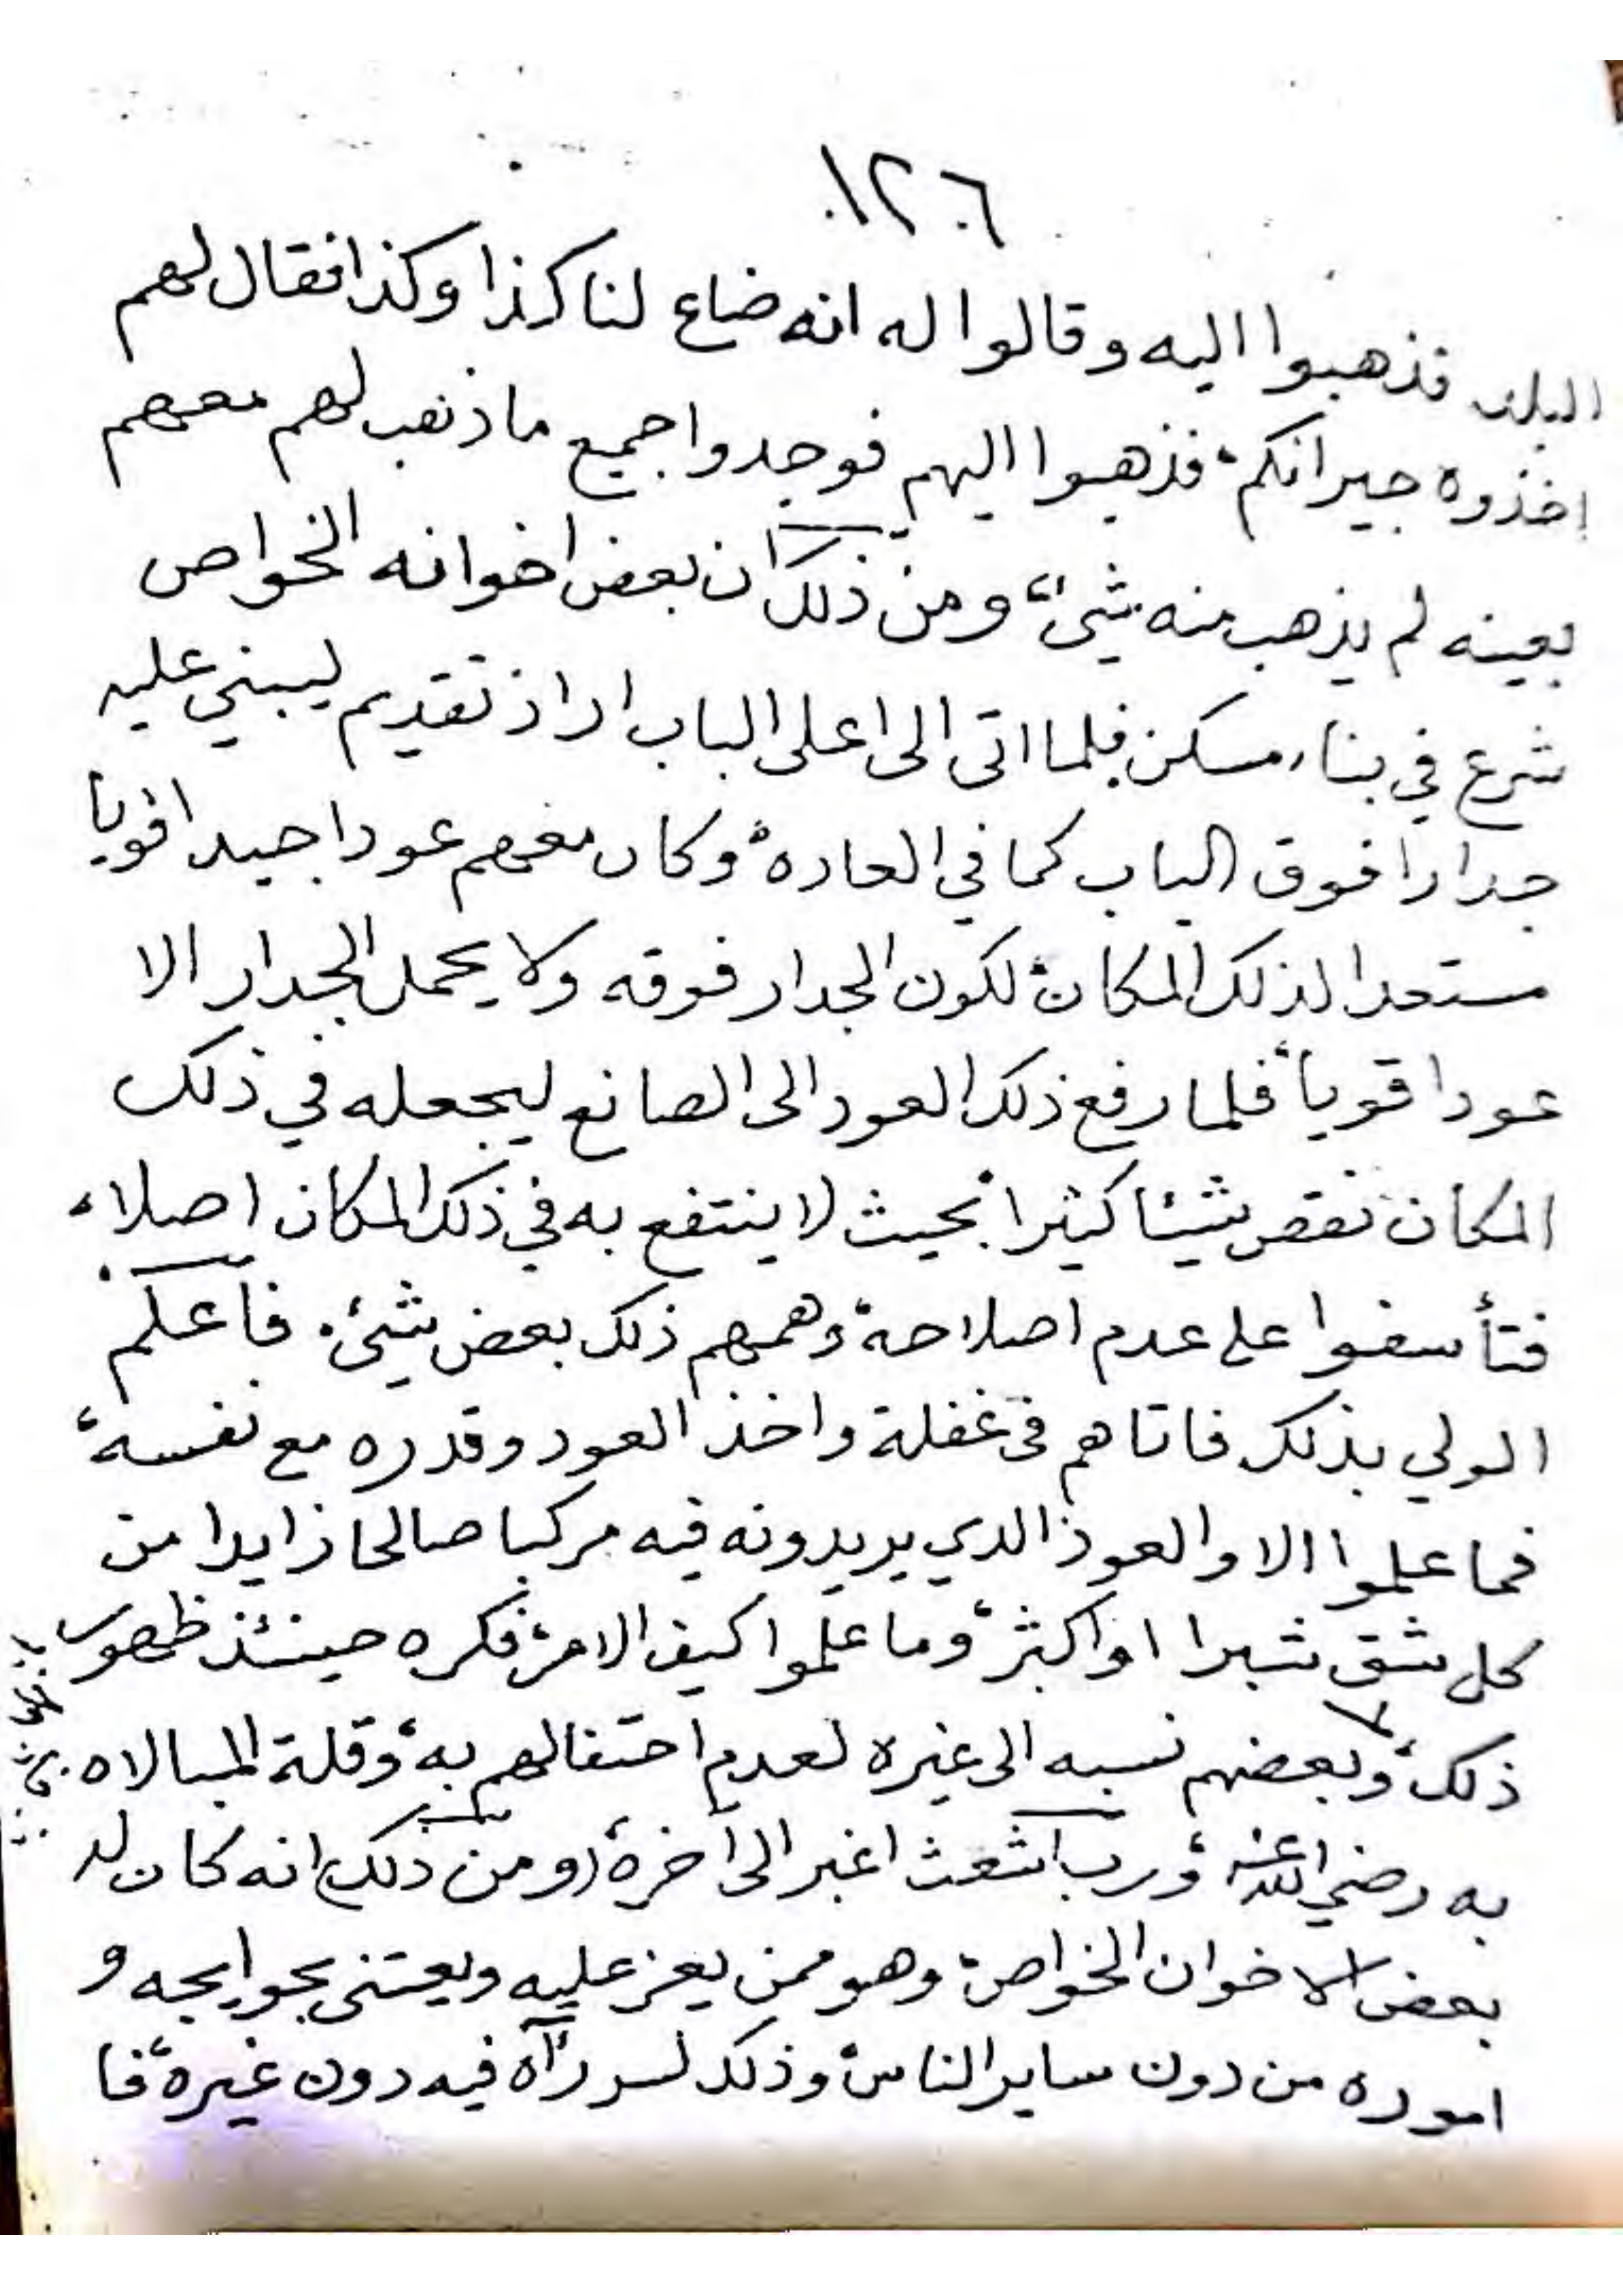 ١٢٦
البلد فذهبوا اليه وقالوا له انه ضاع لنا كذا وكذا فقال لهم
اخذوه جيرانكم، فذهبوا اليهم فوجدوا جميع ما ذهب لهم معهم
بعينه لم يذهب منه شيئ، ومن ذلك ان بعض اخوانه الخواص
شرع في بناء مسكن فلما اتى الى اعلى الباب اراد تقديم ليبني عليه
جدارا فوق الباب كما في العاده، وكان معهم عودا جيدا قويا
مستعدا لذلك المكان، لكون الجدار فوقه ولا يحمل الجدار الا
عودا قوياً، فلما رفع ذلك العود الى الصانع ليجعله في ذلك
المكان نقص شيئا كثيرا بحيث لا ينتفع به في ذلك المكان اصلا،
فتأسفوا على عدم اصلاحه، وهمهم ذلك بعض شيئ. فاعلم
الولي بذلك فاتاهم في غفلة واخذ العود وقدره مع نفسه،
فما علموا الا والعود الذي يريدونه فيه مركبا صالحا زايدا من
كل شق شبرا او اكثر، وما علموا كيف الامر، فكره حينئذ ظهور
ذلك، وبعضهم نسبه الى غيره لعدم احتفالهم به، وقلة المبالاه
به رضي الله عنه، ورب اشعث اغبر الى آخره، (ومن ذلك) انه كان له
بعض الاخوان الخواص، وهو ممن يعز عليه ويعتنى بحوايجه و
اموره من دون ساير الناس، وذلك لسر رآه فيه دون غيره، فا